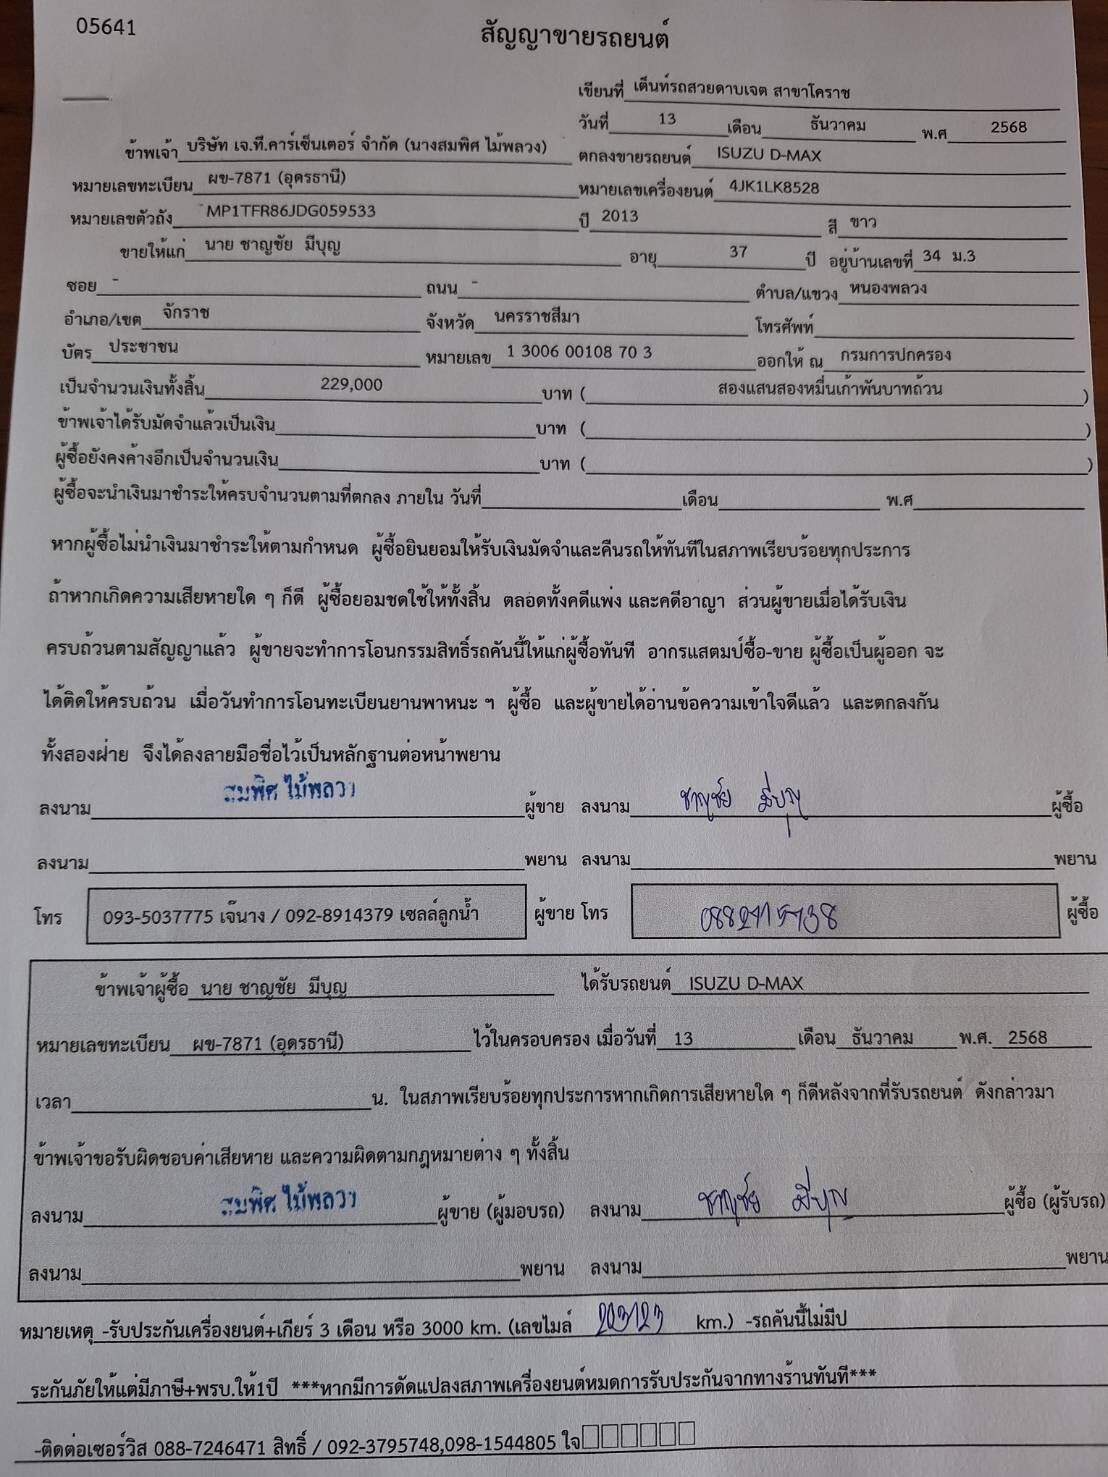 05641
สัญญาขายรถยนต์
เขียนที่ เต็นท์รถสวยดาบเจต สาขาโคราช
วันที่ 13 เดือน ธันวาคม พ.ศ 2568
ข้าพเจ้า บริษัท เจ.ที.คาร์เซ็นเตอร์ จำกัด (นางสมพิศ ไม้พลวง) ตกลงขายรถยนต์ ISUZU D-MAX
หมายเลขทะเบียน ผข-7871 (อุดรธานี) หมายเลขเครื่องยนต์ 4JK1LK8528
หมายเลขตัวถัง MP1TFR86JDG059533 ปี 2013 สี ขาว
ขายให้แก่ นาย ชาญชัย มีบุญ อายุ 37 ปี อยู่บ้านเลขที่ 34 ม.3
ซอย - ถนน - ตำบล/แขวง หนองพลวง
อำเภอ/เขต จักราช จังหวัด นครราชสีมา โทรศัพท์
บัตร ประชาชน หมายเลข 1 3006 00108 70 3 ออกให้ ณ กรมการปกครอง
เป็นจำนวนเงินทั้งสิ้น 229,000 บาท ( สองแสนสองหมื่นเก้าพันบาทถ้วน )
ข้าพเจ้าได้รับมัดจำแล้วเป็นเงิน บาท ( )
ผู้ซื้อยังคงค้างอีกเป็นจำนวนเงิน บาท ( )
ผู้ซื้อจะนำเงินมาชำระให้ครบจำนวนตามที่ตกลง ภายใน วันที่ เดือน พ.ศ
หากผู้ซื้อไม่นำเงินมาชำระให้ตามกำหนด ผู้ซื้อยินยอมให้รับเงินมัดจำและคืนรถให้ทันทีในสภาพเรียบร้อยทุกประการ
ถ้าหากเกิดความเสียหายใด ๆ ก็ดี ผู้ซื้อยอมชดใช้ให้ทั้งสิ้น ตลอดทั้งคดีแพ่ง และคดีอาญา ส่วนผู้ขายเมื่อได้รับเงิน
ครบถ้วนตามสัญญาแล้ว ผู้ขายจะทำการโอนกรรมสิทธิ์รถคันนี้ให้แก่ผู้ซื้อทันที อากรแสตมป์ซื้อ-ขาย ผู้ซื้อเป็นผู้ออก จะ
ได้ติดให้ครบถ้วน เมื่อวันทำการโอนทะเบียนยานพาหนะ ฯ ผู้ซื้อ และผู้ขายได้อ่านข้อความเข้าใจดีแล้ว และตกลงกัน
ทั้งสองฝ่าย จึงได้ลงลายมือชื่อไว้เป็นหลักฐานต่อหน้าพยาน
ลงนาม สมพิศ ไม้พลวง ผู้ขาย ลงนาม ชาญชัย มีบุญ ผู้ซื้อ
ลงนาม พยาน ลงนาม พยาน
โทร 093-5037775 เจ๊นาง / 092-8914379 เซลล์ลูกน้ำ ผู้ขาย โทร ผู้ซื้อ
ข้าพเจ้าผู้ซื้อ นาย ชาญชัย มีบุญ ได้รับรถยนต์ ISUZU D-MAX
หมายเลขทะเบียน ผข-7871 (อุดรธานี) ไว้ในครอบครอง เมื่อวันที่ 13 เดือน ธันวาคม พ.ศ. 2568
เวลา น. ในสภาพเรียบร้อยทุกประการหากเกิดการเสียหายใด ๆ ก็ดีหลังจากที่รับรถยนต์ ดังกล่าวมา
ข้าพเจ้าขอรับผิดชอบค่าเสียหาย และความผิดตามกฎหมายต่าง ๆ ทั้งสิ้น
ลงนาม สมพิศ ไม้พลวง ผู้ขาย (ผู้มอบรถ) ลงนาม ชาญชัย มีบุญ ผู้ซื้อ (ผู้รับรถ)
ลงนาม พยาน ลงนาม พยาน
หมายเหตุ -รับประกันเครื่องยนต์+เกียร์ 3 เดือน หรือ 3000 km. (เลขไมล์ 203123 km.) -รถคันนี้ไม่มีป
ระกันภัยให้แต่มีภาษี+พรบ.ให้1ปี ***หากมีการดัดแปลงสภาพเครื่องยนต์หมดการรับประกันจากทางร้านทันที***
-ติดต่อเซอร์วิส 088-7246471 สิทธิ์ / 092-3795748,098-1544805 ใจ